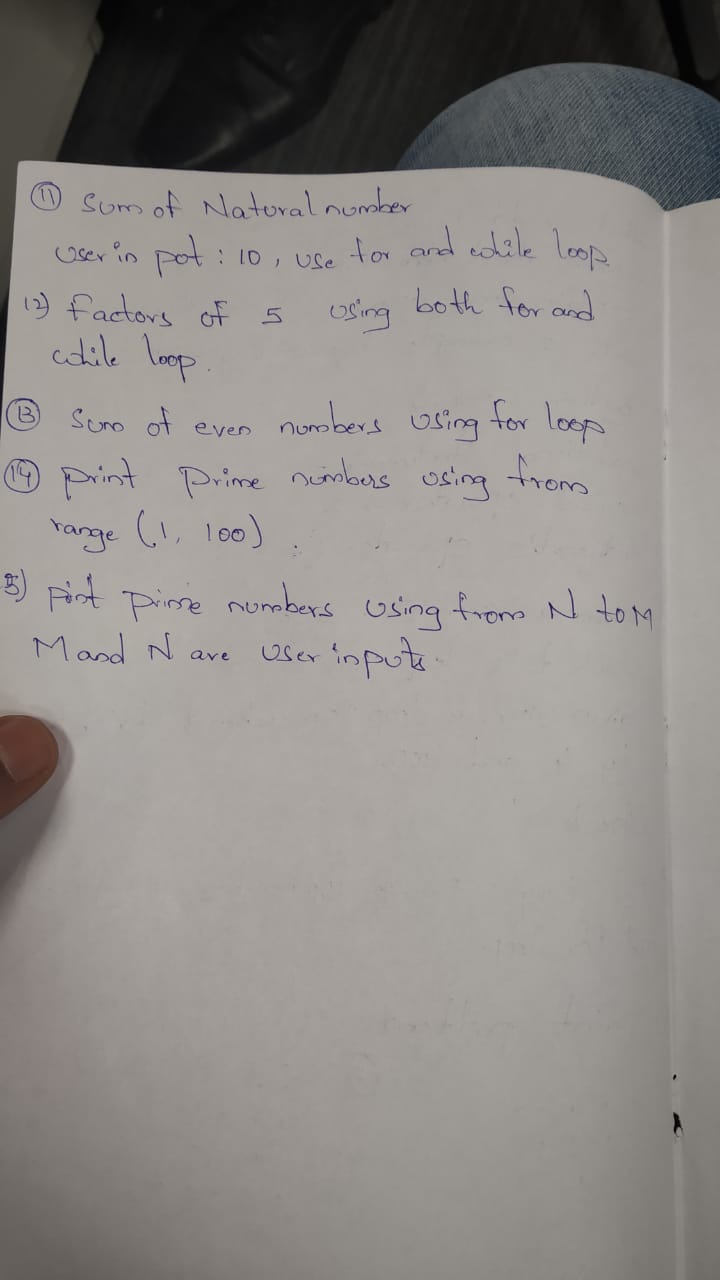 11 Sum of Natural number
User in put : 10, use for and while loop.
12) factors of 5 using both for and
while loop.
13 Sum of even numbers using for loop
14 print Prime numbers using from
range (1, 100).
5) print prime numbers using from N to M
M and N are user inputs.